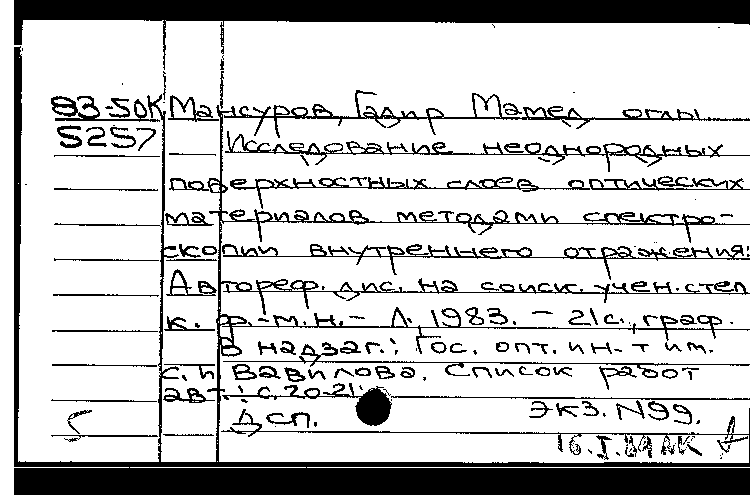 83-50К Мансуров, Гадир Мамед оглы
5257 Исследование неоднородных
поверхностных слоев оптических
материалов методами спектро-
скопии внутреннего отражения:
Автореф. дис. на соиск. учен. степ
к. ф.-м. н. - Л., 1983. - 21с., граф.
В надзаг.: Гос. опт. ин-т им.
С. И. Вавилова. Список работ
авт.: с. 20-21.
ДСП. экз. N99.
5 16.I.